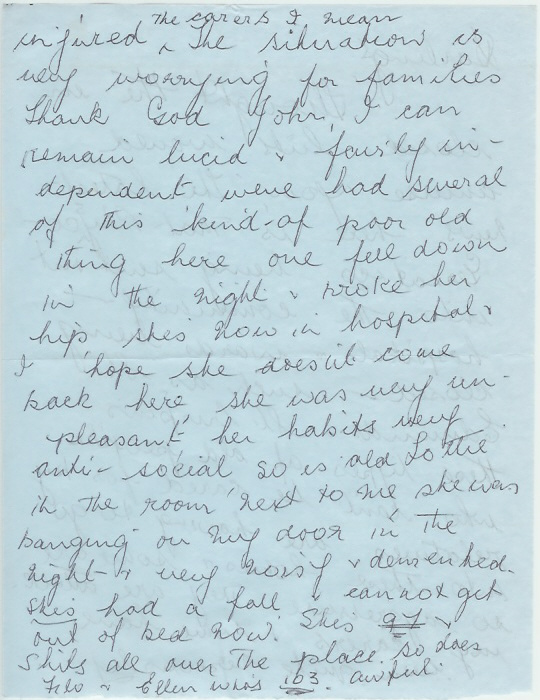 The carers I mean
injured ^ The situation is
very worrying for families
Thank God John, I can
remain lucid & fairly in-
dependent weve had several
of this kind-of poor old
thing here one fell down
in the night & broke her
hip shes now in hospital &
I hope she doesn't come
back here, she was very un-
pleasant her habits very
anti-social so is old Lottie
in the room next to me she was
banging on my door in the
night & very noisy & demented.
shes had a fall & cannot get
out of bed now. Shes 97 &
shits all over the place. so does
Flo & Ellen who's 103 awful.